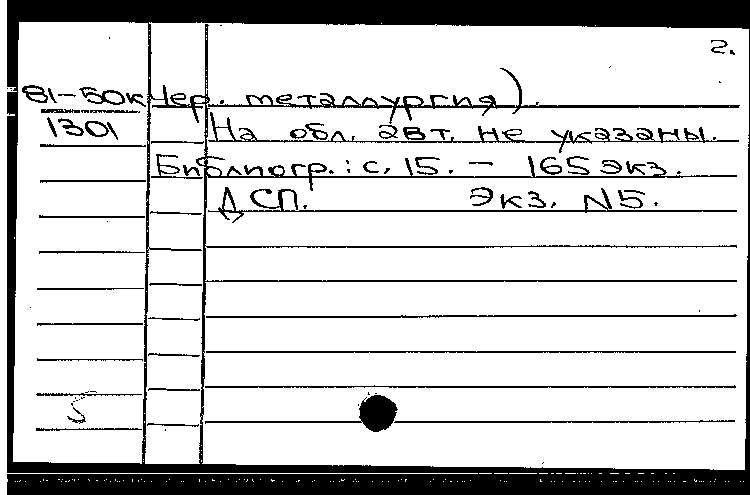 2.
81-50к Чер. металлургия).
1301 На обл. авт. не указаны.
Библиогр.: с. 15. - 165 экз.
ДСП. Экз. N5.
5